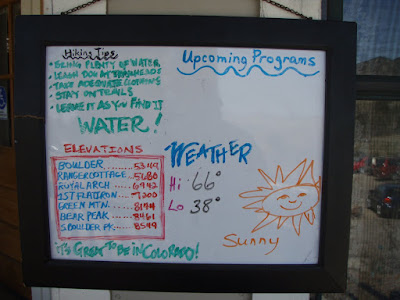 Hiking Tips
• BRING PLENTY OF WATER
• LEASH DOG AT TRAILHEADS
• TAKE ADEQUATE CLOTHING
• STAY ON TRAILS
• LEAVE IT AS YOU FIND IT
WATER!
Upcoming Programs
ELEVATIONS
BOULDER........5344
RANGER COTTAGE...5680
ROYAL ARCH.....6942
1ST FLATIRON....7200
GREEN MTN.....8144
BEAR PEAK.....8461
S BOULDER PK...8549
WEATHER
Hi 66°
Lo 38°
Sunny
it's GREAT TO BE IN COLORADO!